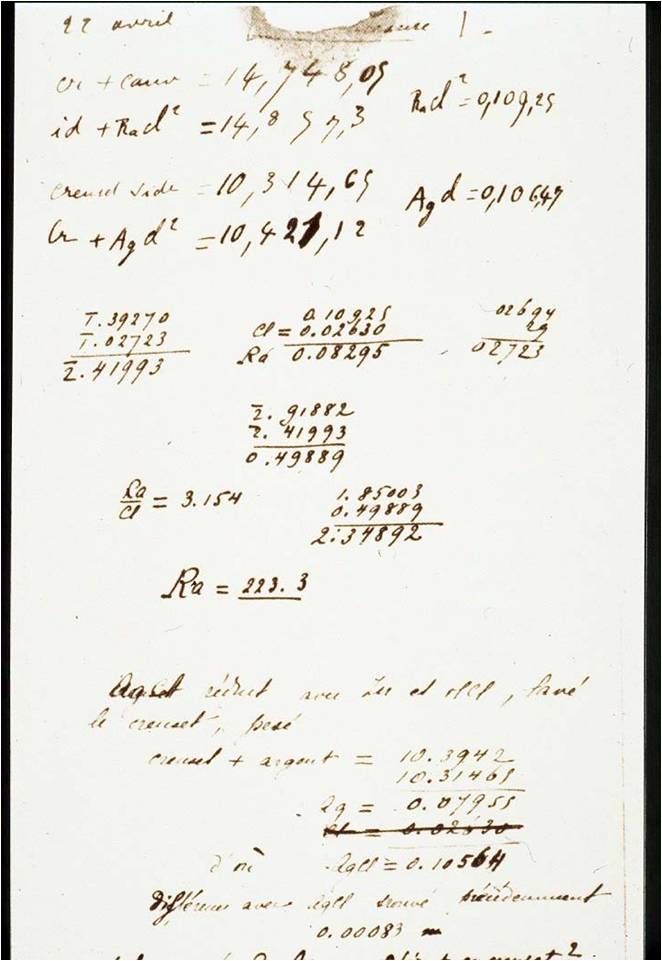 22 avril
Cr + couv = 14,748,05 Ra cl² = 0,109,25
id + Ra cl² = 14,857,3
creuset vide = 10,314,65 Ag cl = 0,106,47
Cr + Ag cl² = 10,421,12
1̅.39270 0.10925 02694
1̅.02723 Cl = 0.02630 29
2̅.41993 Ra 0.08295 02723
2̅.91882
2̅.41993
0.49889
Ra/Cl = 3.154 1.85003
0.49889
2.34892
Ra = 223.3
AgCl réduit avec Zn et HCl, lavé
le creuset, pesé
creuset + argent = 10.3942
10.31465
Ag = 0.07955
Cl = 0.02630
d'où AgCl = 0.10564
différence avec AgCl trouvé précédemment
0.00083